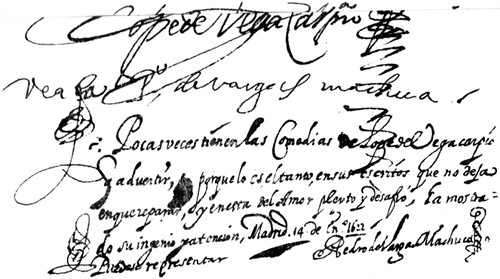 Lope de Vega Carpio
Vea la Pº de vargas machuca.
Pocas veces tienen las Comedias de Lope de Vega carpio
q advertir, porque lo es el tanto, en sus escritos que no deja
en que reparar, y en esta del Amor pleyto y desafio, ha mostra=
do su ingenio y atencion, Madrid 14 de enº 1621
Puedese representar Pedro de Vargas Machuca